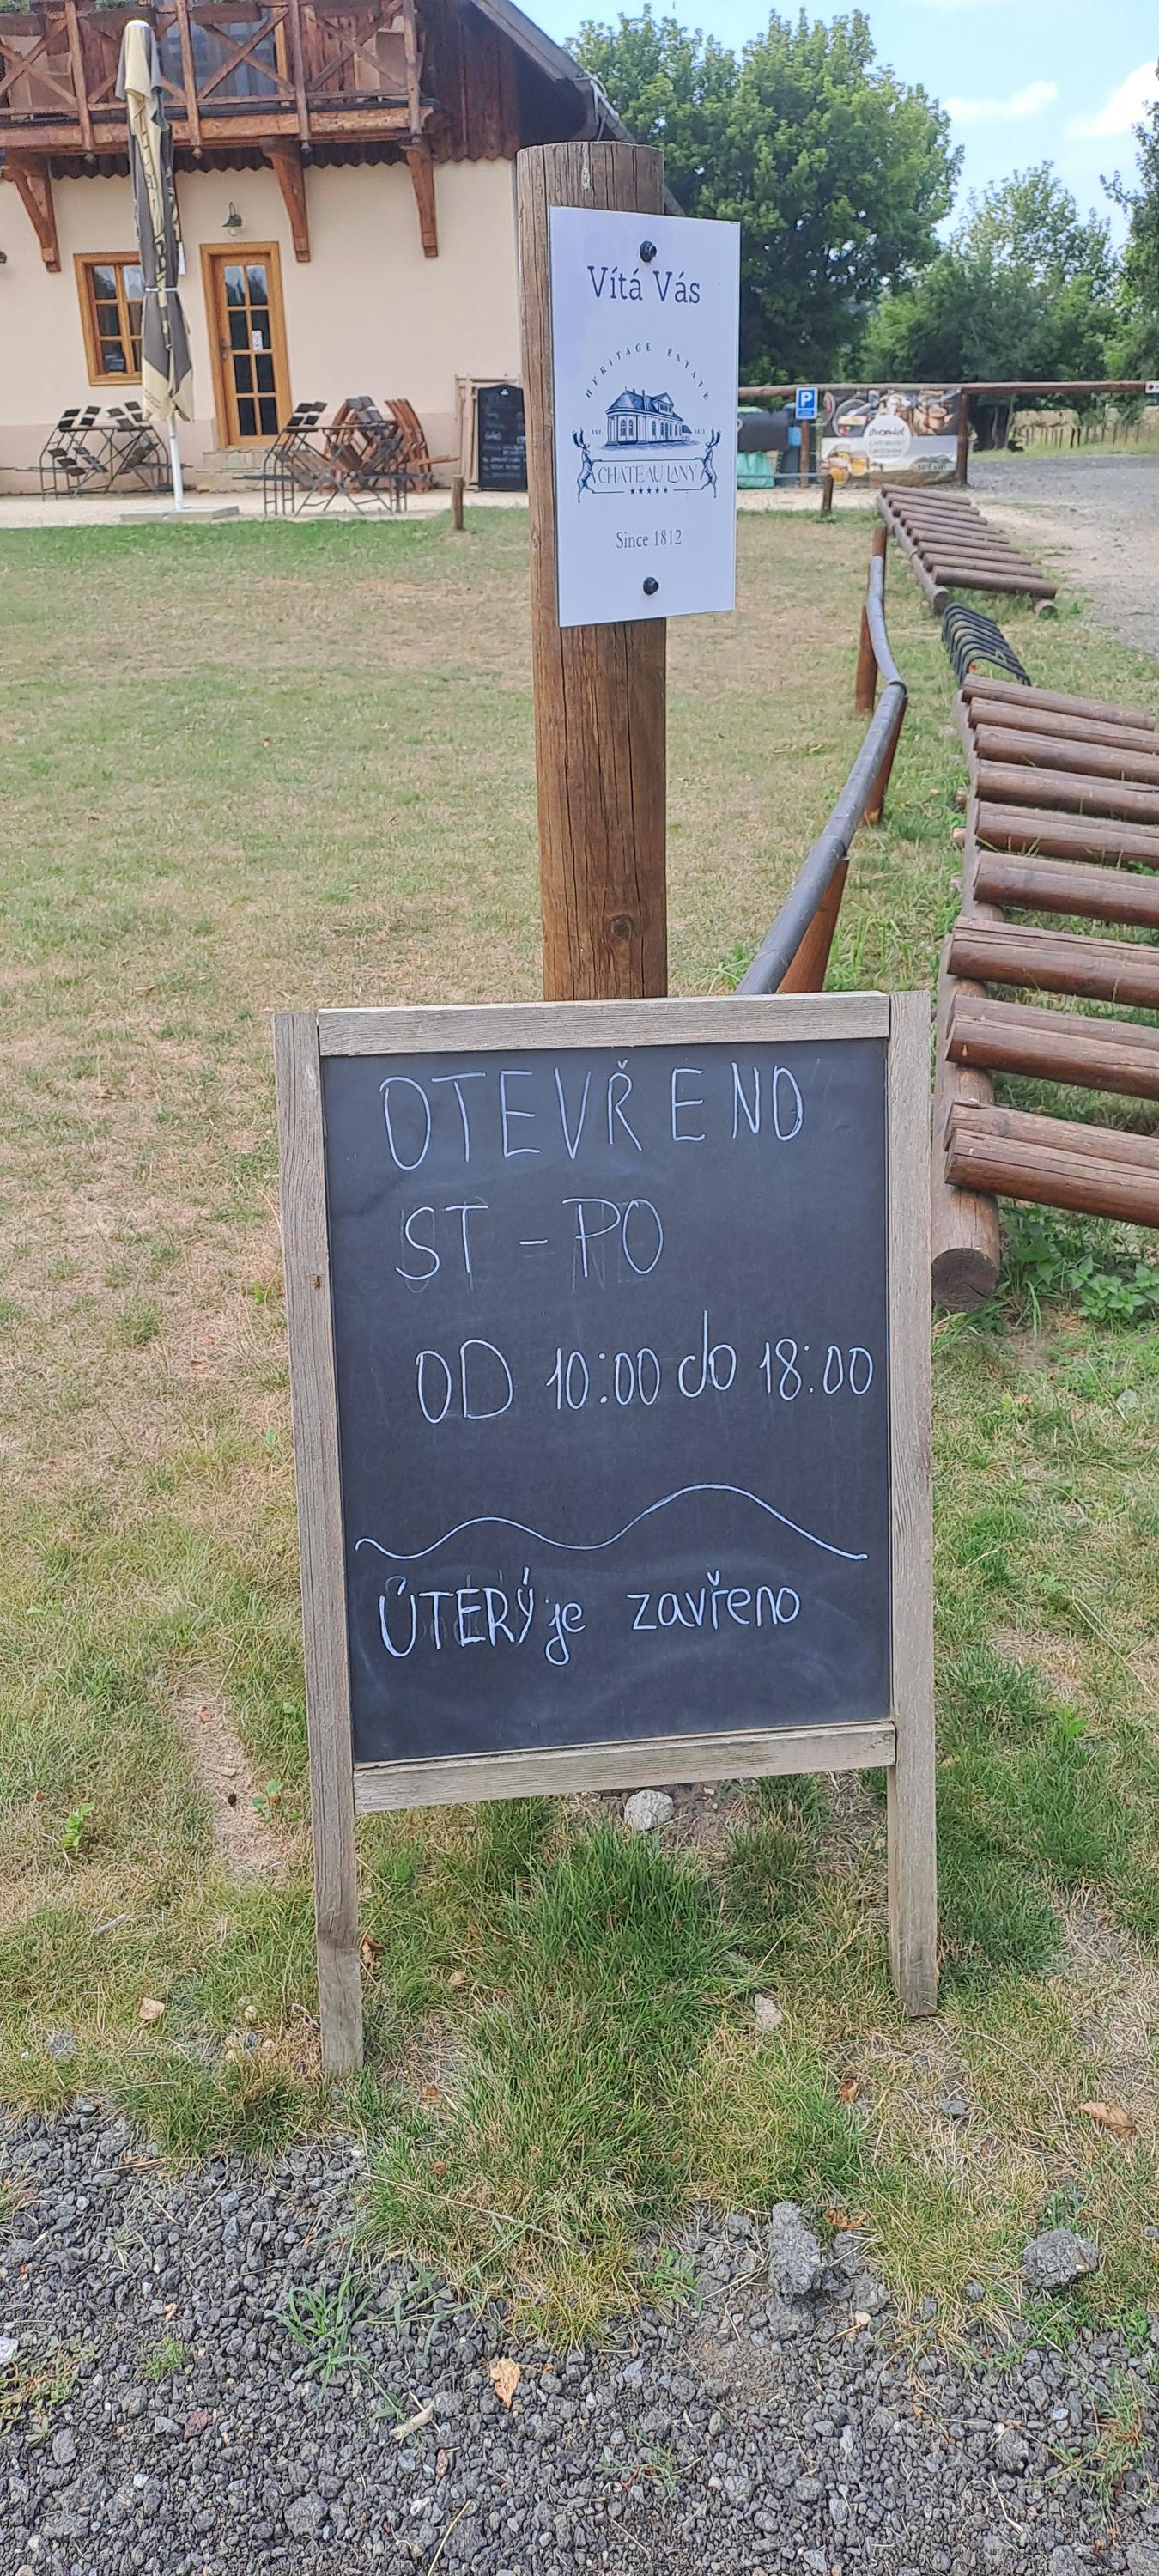 Vítá Vás
HERITAGE ESTATE
EST. 1812
CHATEAU LÁNY
Since 1812
P
OTEVŘENO
ST - PO
OD 10:00 do 18:00
ÚTERÝ je zavřeno